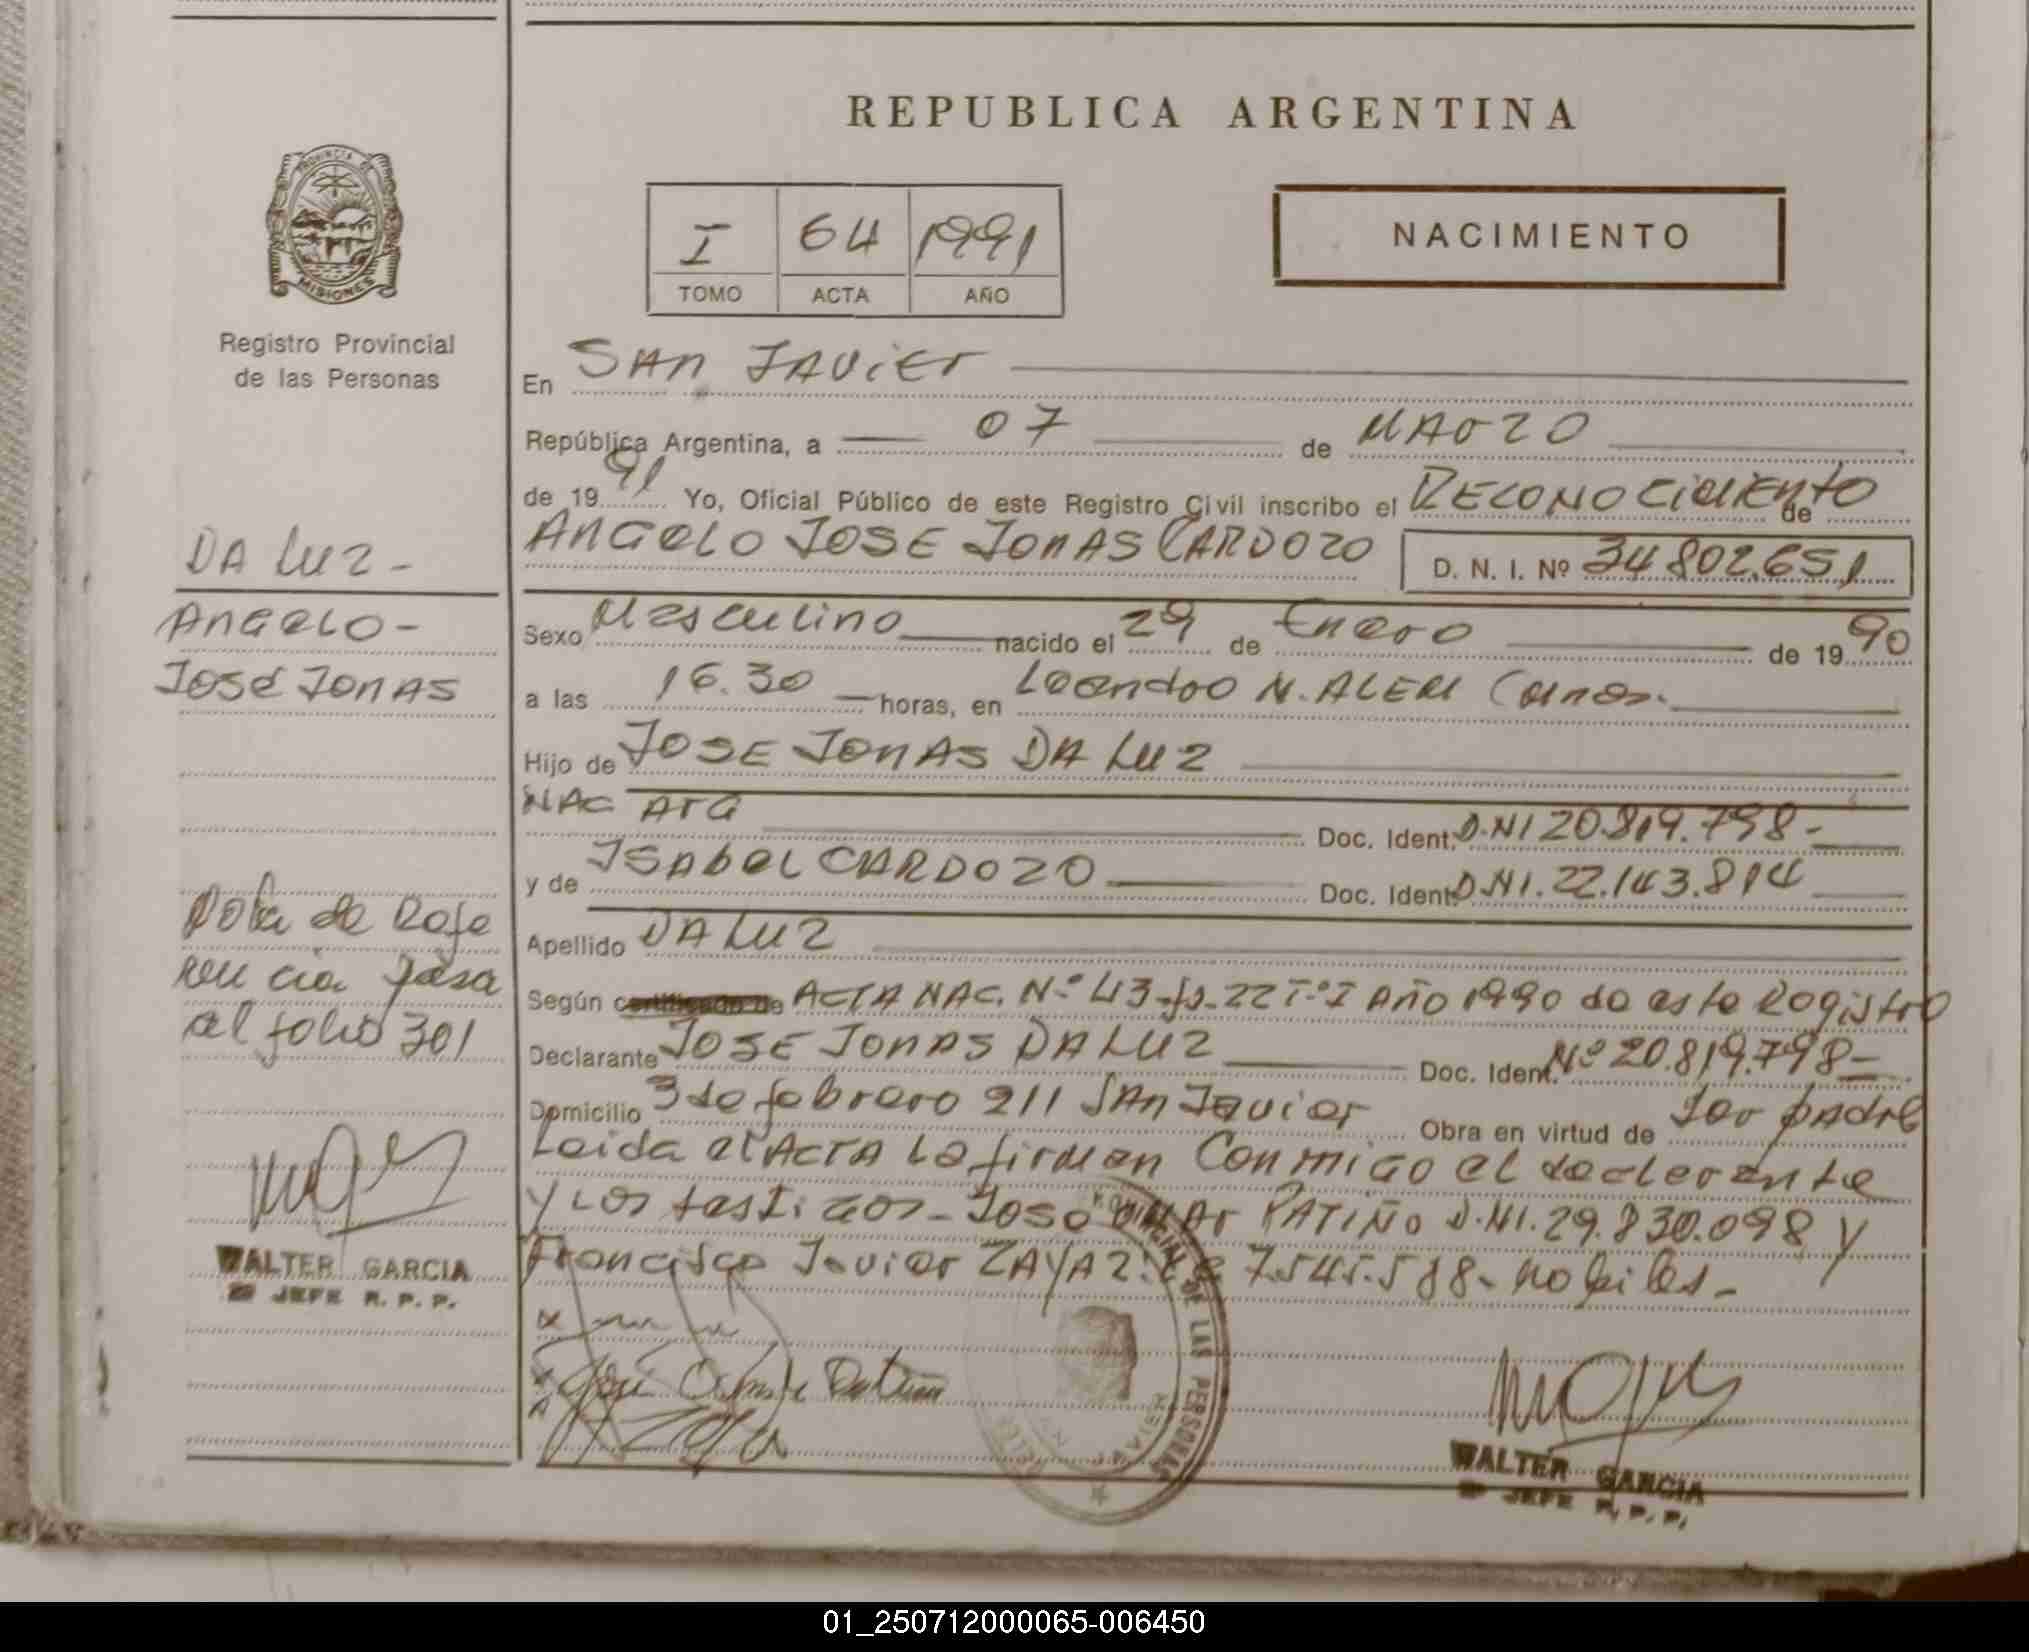 REPUBLICA ARGENTINA
PROVINCIA DE
MISIONES
Registro Provincial
de las Personas
I 64 1991
TOMO ACTA AÑO
NACIMIENTO
En SAN JAVIER
República Argentina, a 07 de MARZO
de 1991 Yo, Oficial Público de este Registro Civil inscribo el RECONOCIMIENTO de
ANGELO JOSE JONAS CARDOZO D. N. I. Nº 34802.651
Sexo Masculino nacido el 29 de Enero de 1990
a las 16.30 horas, en Leandro N. ALEM
Hijo de JOSE JONAS DA LUZ
NAC ARG Doc. Ident. D.NI 20.819.798-
y de ISABEL CARDOZO Doc. Ident. D.NI. 22.143.814
Apellido DA LUZ
Según certificado de ACTA NAC. Nº 43-fº-22 Tº I AÑO 1990 de este Registro
Declarante JOSE JONAS DA LUZ Doc. Ident. Nº 20.819.798-
Domicilio 3 de febrero 211 SAN Javier Obra en virtud de ser padre
Leida el ACTA La firman Conmigo el declarante
y Los testigos - Jose OMAR PATIÑO D.NI. 29.830.098 y
Francisco Javier ZAYAZ 7.545.588-
DA LUZ -
ANGELO -
José JONAS
Nota de Refe
ren cia pasa
al folio 301
WALTER GARCIA
JEFE R. P. P.
DE LAS PERSONAS
WALTER GARCIA
JEFE R. P. P.
01_250712000065-006450